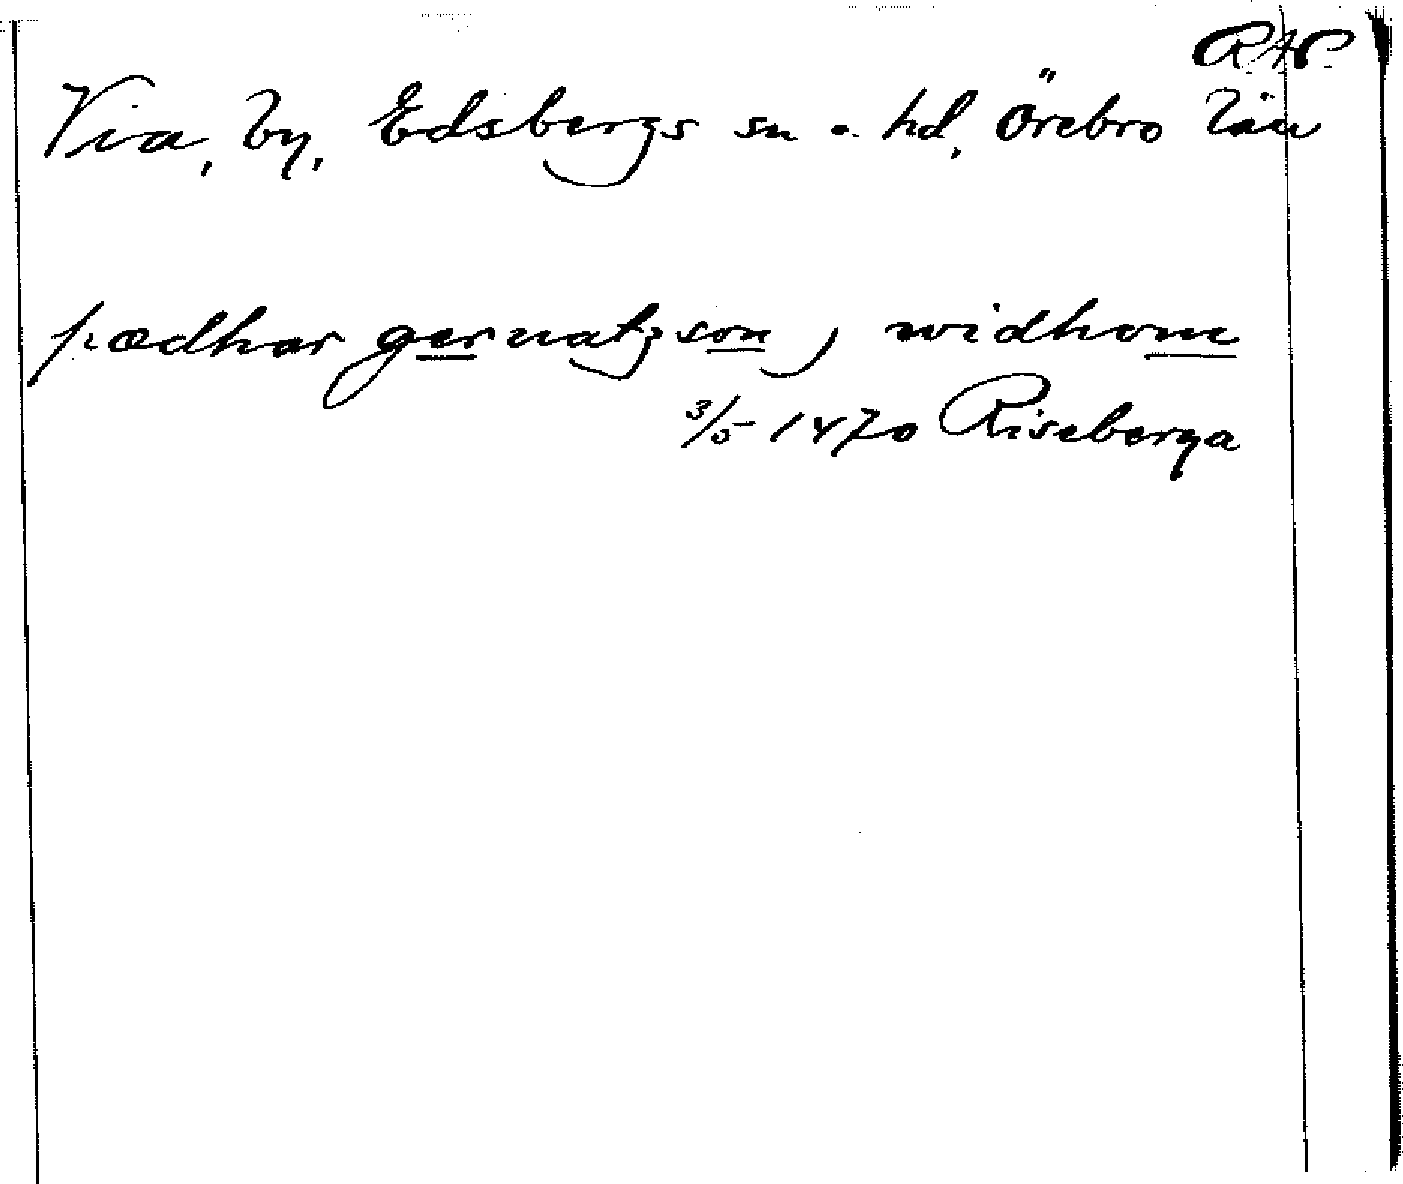 RAP.
Via, by, Edsbergs sn o. hd, Örebro län
pædhar gernatzson j widhom
3/5 1470 Riseberga